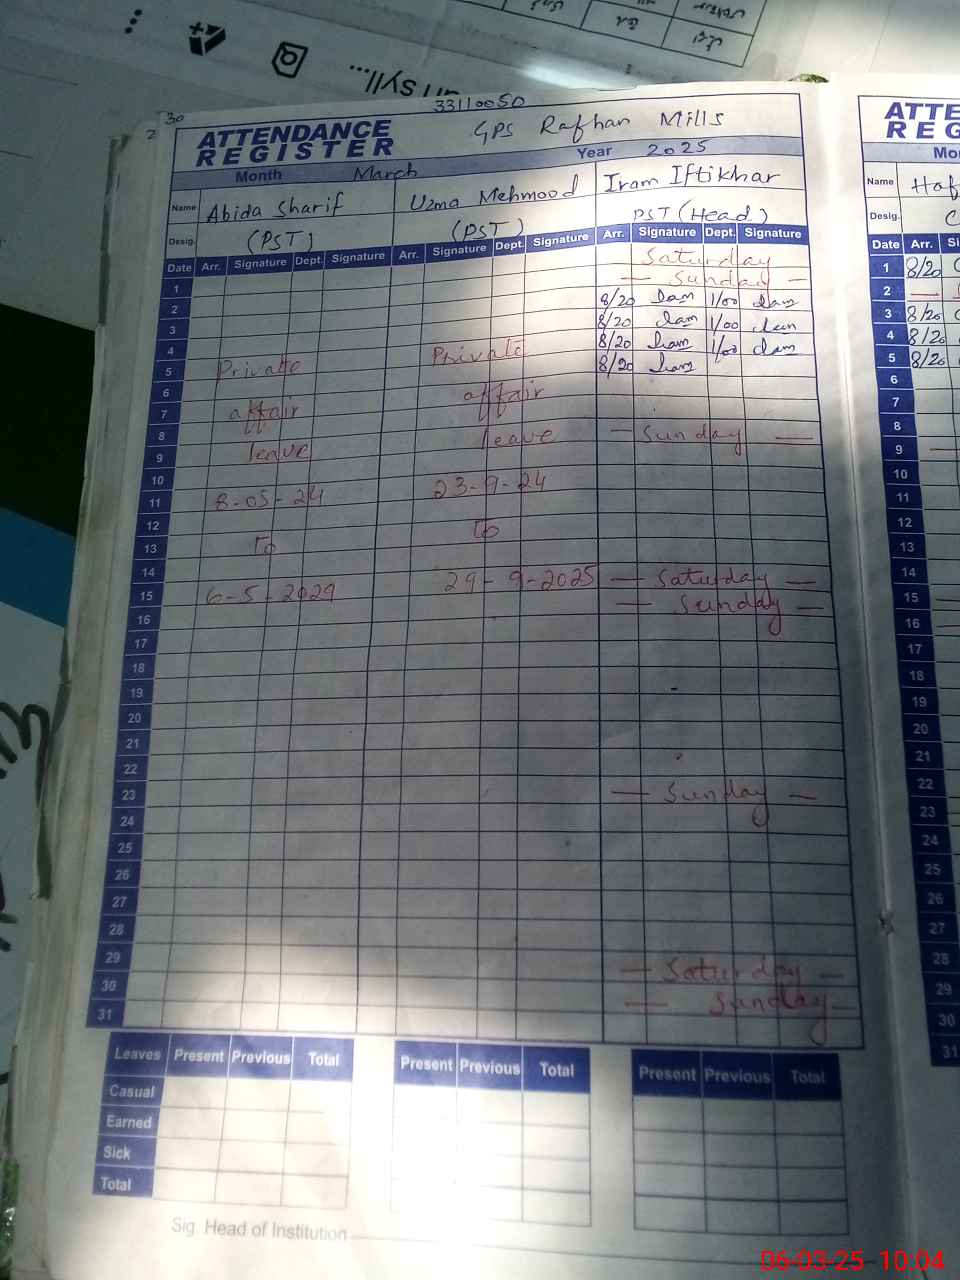 33110050
30
2
ATTENDANCE REGISTER
GPS Rafhan Mills
Month March Year 2025
Name Abida Sharif Uzma Mehmood Iram Iftikhar
Desig. (PST) (PST) PST (Head)
Date Arr. Signature Dept. Signature Arr. Signature Dept. Signature Arr. Signature Dept. Signature
1 Saturday
2 — Sunday —
3 8/20 1/00
4 8/20 1/00
5 8/20 1/00
6 8/20
Private Private
7 affair affair
8
9 leave leave — Sunday —
10
11 8-05-24 23-9-24
12
13 To To
14
15 6-5-2029 29-9-2025 — Saturday —
16 — Sunday —
17
18
19
20
21
22
23 — Sunday —
24
25
26
27
28
29 — Saturday —
30 — Sunday —
31
Leaves Present Previous Total Present Previous Total Present Previous Total
Casual
Earned
Sick
Total
Sig. Head of Institution
ATTE
REG
Mo
Name Haf
Desig. C
Date Arr. Si
1 8/20
2 —
3 8/20
4 8/20
5 8/20
6
7
8
9 —
10
11
12
13
14
15
16
17
18
19
20
21
22
23
24
25
26
27
28
29
30
31
06-03-25 10:04